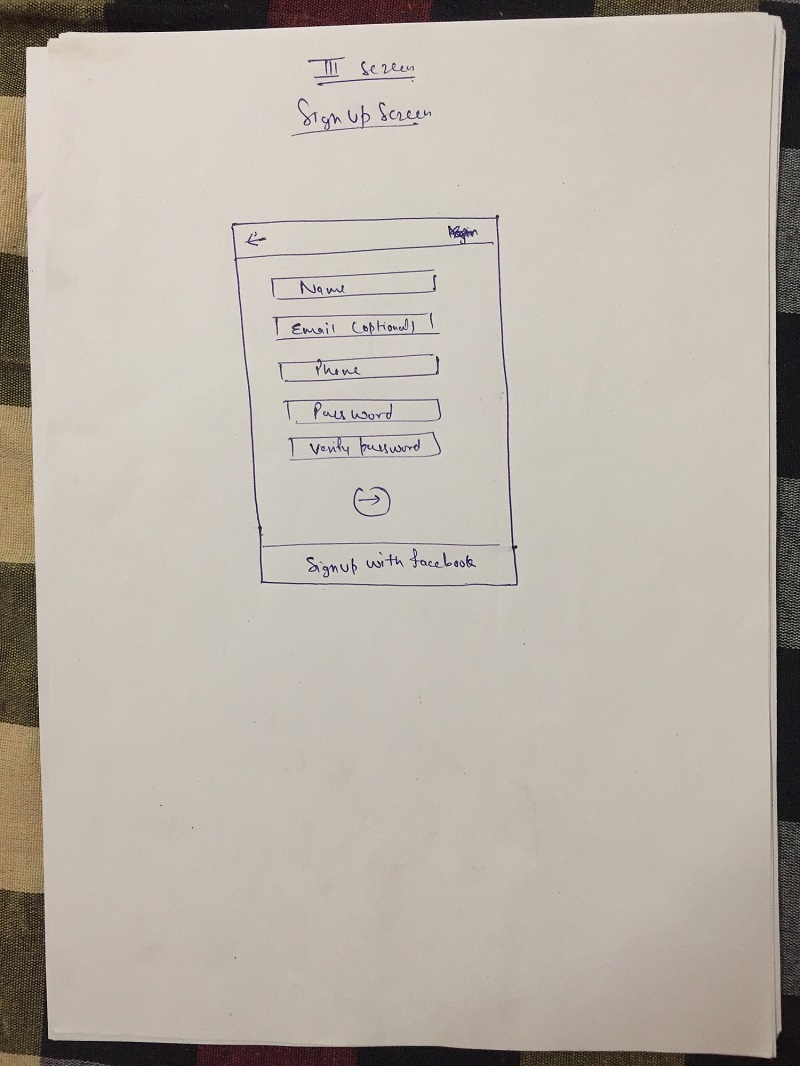 III Screen
Sign Up Screen
←
Name
Email (optional)
Phone
Password
Verify password
→
Signup with facebook